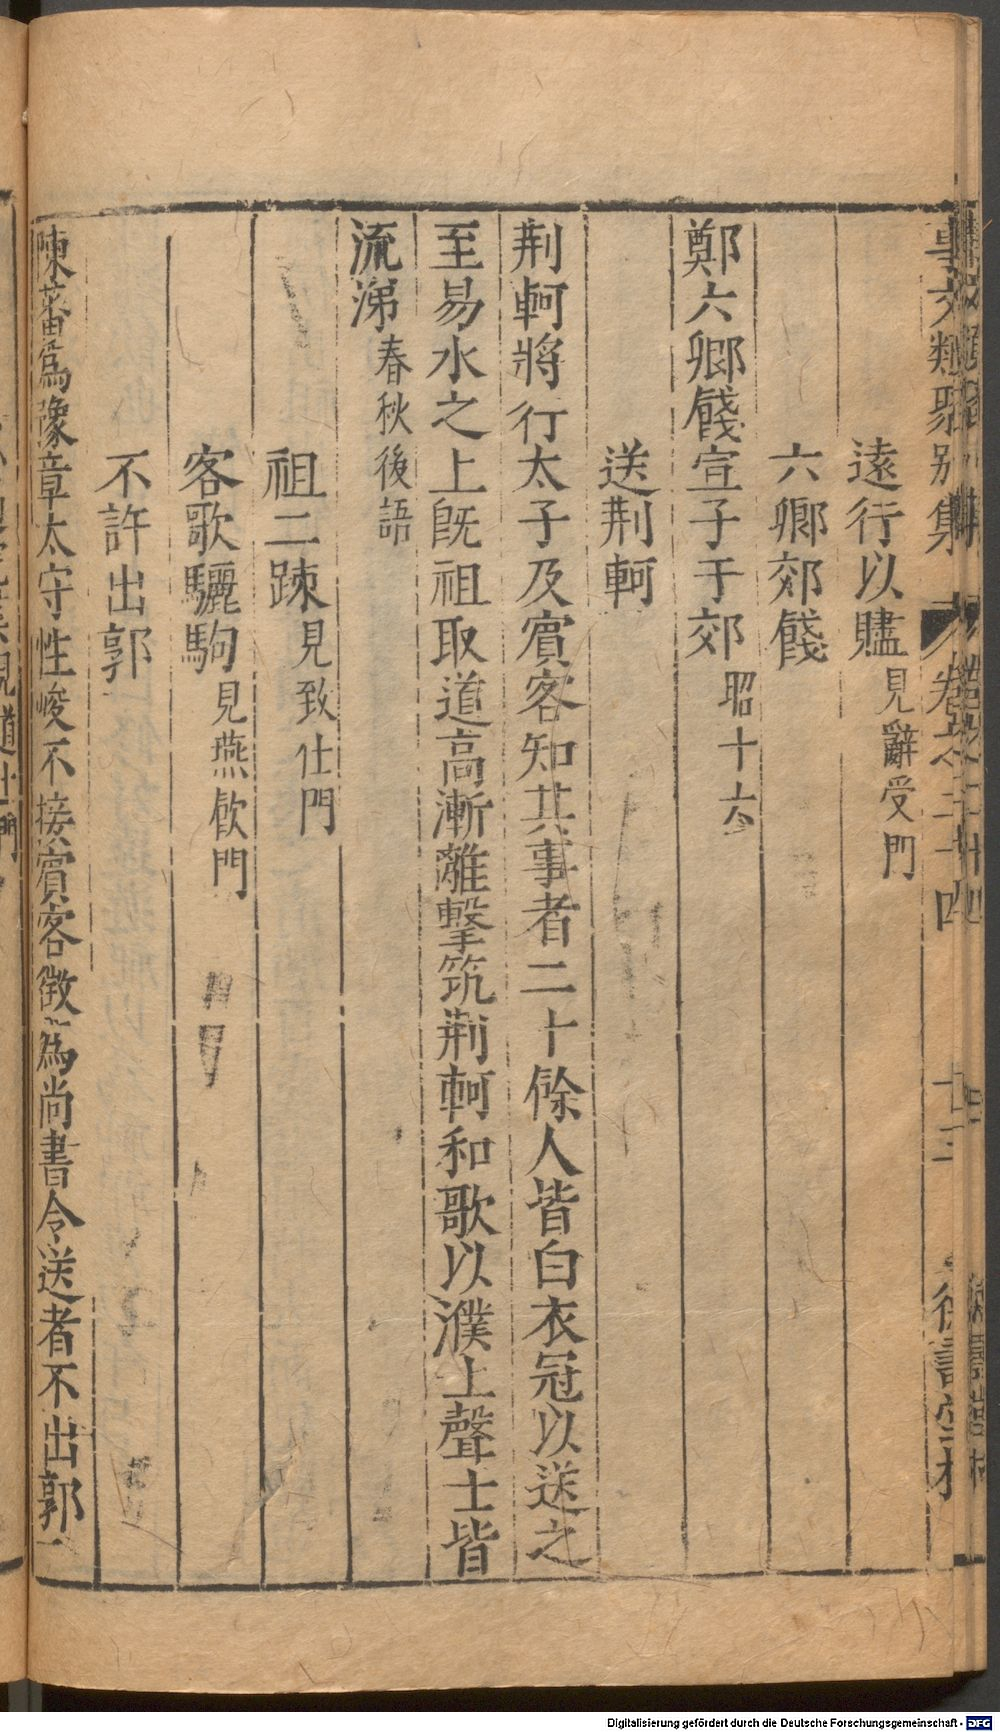 事文類聚别集 卷之二十四 十三 德壽堂梓
遠行以贐見辭受門
六卿郊餞
鄭六卿餞宣子于郊昭十六
送荆軻
荆軻將行太子及賓客知其事者二十餘人皆白衣冠以送之
至易水之上旣祖取道高漸離擊筑荆軻和歌以濮上聲士皆
流涕春秋後語
祖二踈見致仕門
客歌驪駒見燕飮門
不許出郭
陳蕃爲豫章太守性峻不接賓客徵爲尚書令送者不出郭
Digitalisierung gefördert durch die Deutsche Forschungsgemeinschaft - DFG